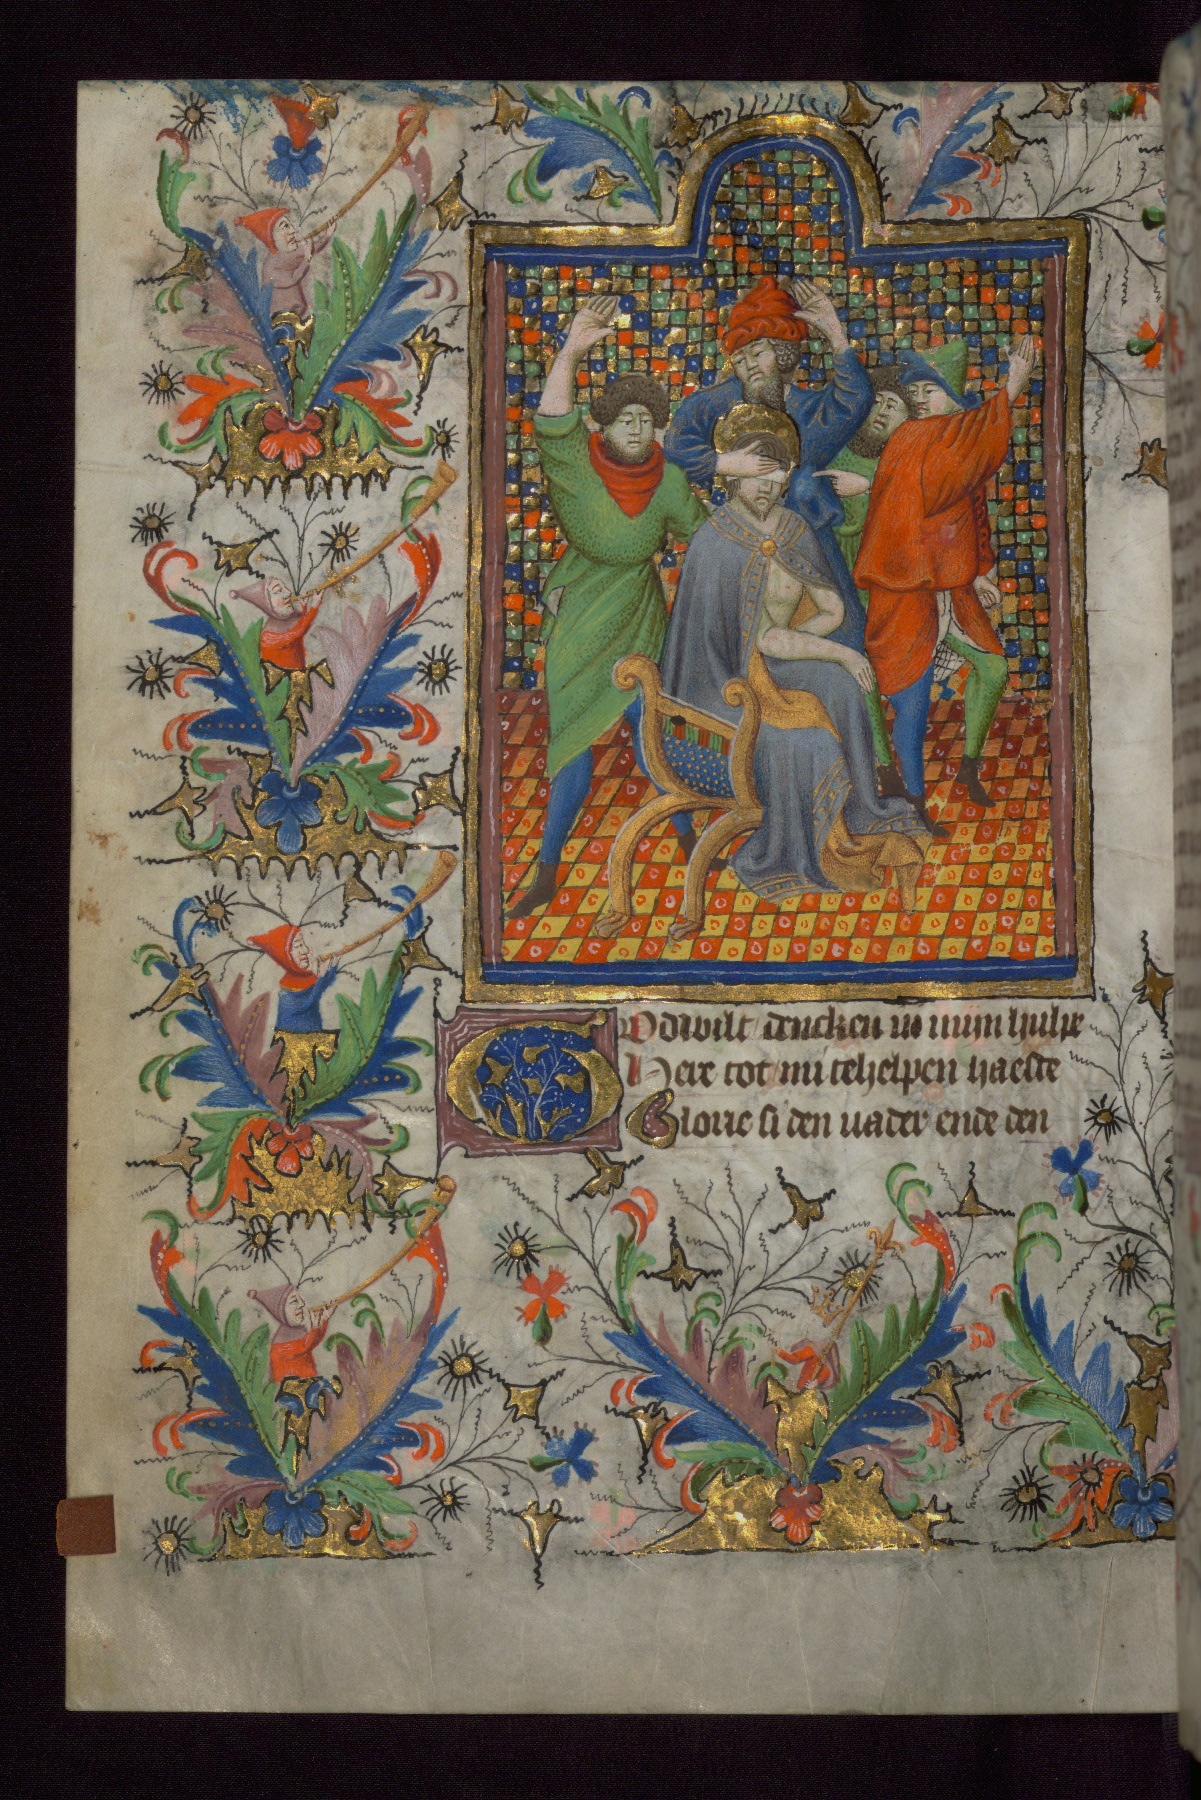 O God wilt dencken in mijn hulpe
Here tot mi te helpen haeste
Glorie si den vader ende den